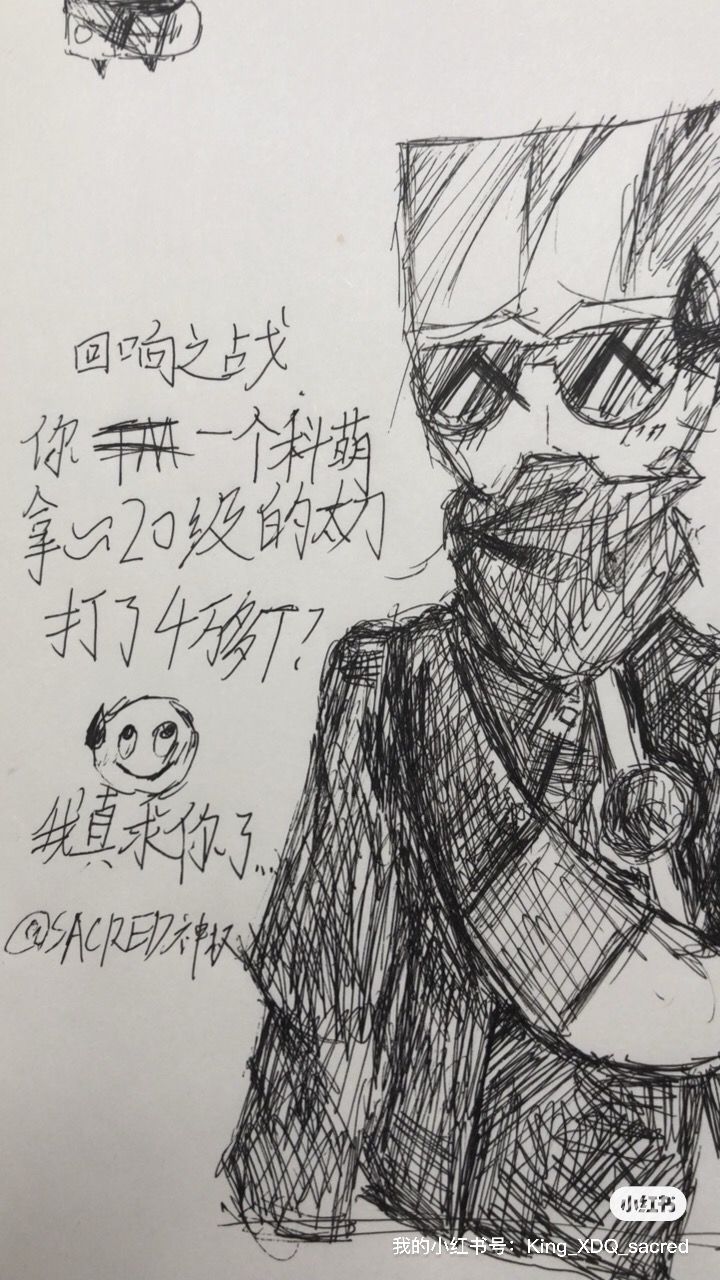 回响之战
你 TM 一个科萌
拿心20级的太刀
打了4万多T?
我真求你了...
@SACRED神权
小红书
我的小红书号：King_XDQ_sacred